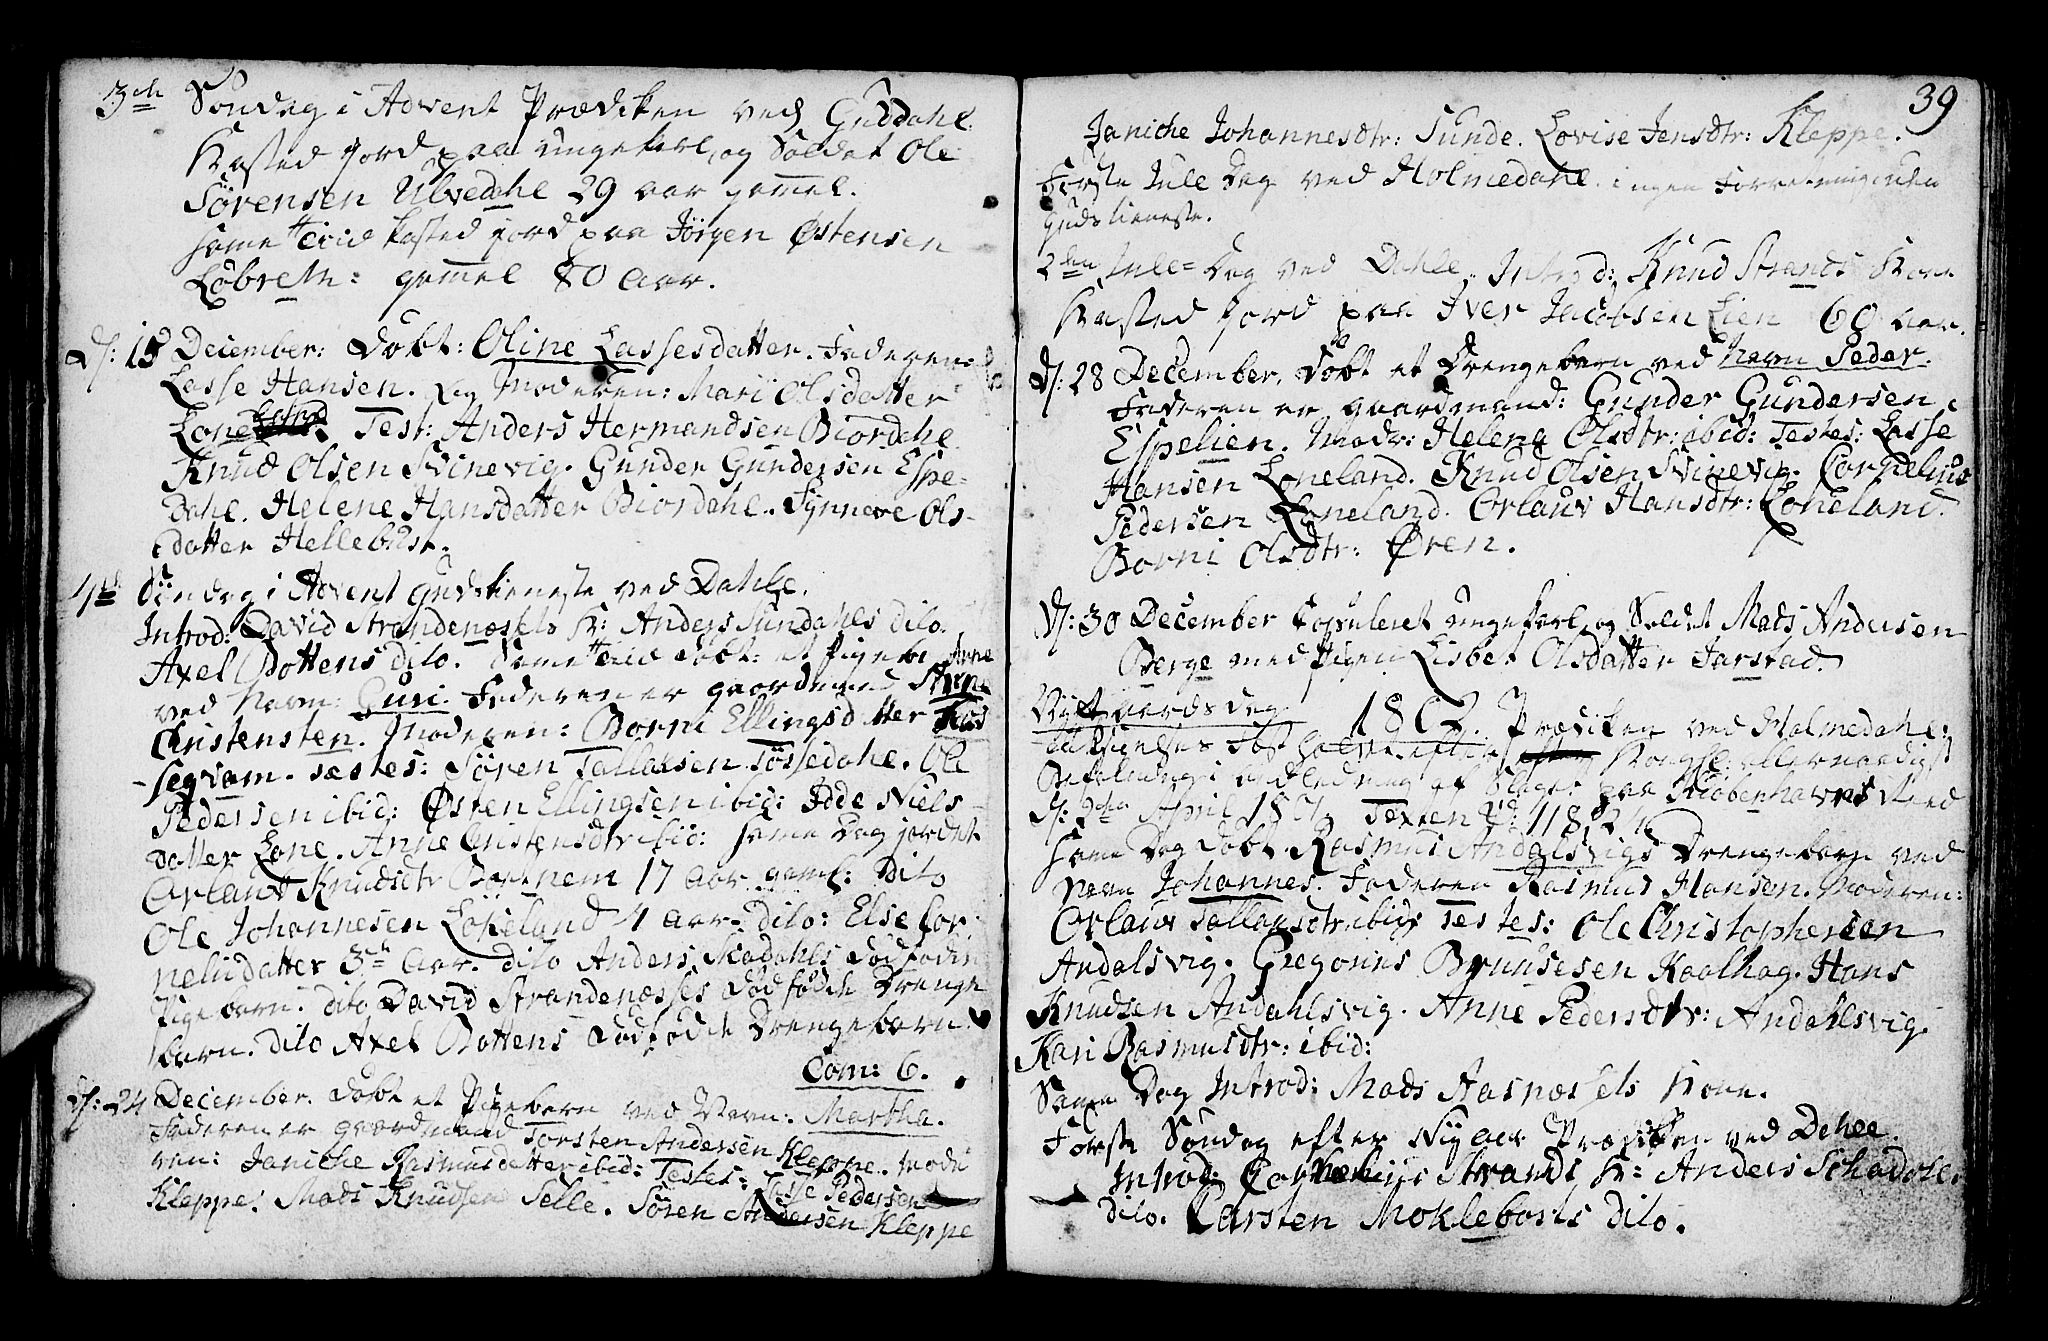 3die Söndag i Advent Prædiken ved Guddahl.
Kasted jord paa ungekarl og Soldat Ole
Sörensen Ulvedahl 29 aar gamel.
same tiid kasted jord paa Jörgen Østensen
gamel 80 aar.
D: 15 December: Döbt: Oline Lassesdatter. Faderen:
Lasse Hansen. og Moderen: Mari Olsdatter
Lone Test: Anders Hermandsen Biordahl
Knud Olsen Svinevig. Gunder Gundersen Espe=
dahl. Helene Hansdatter Biordahl. Synneve Ols-
datter Hellebust.
4de Söndag i Advent gudstieneste ved Dahle.
Introd: David Strandenæssels K: Anders Sundahls dito.
Axel Bottens dito. Same tiid döbt: et Pigebarn
ved Navn: Guri. Faderen er gaardmand
Christensten. Moderen: Borni Ellingsdatter
segvam. Testes: Sören Tallaksen Tössedahl. Ole
Pedersen ibid: Østen Ellingsen ibid: Niels-
datter Lone. Anne Cristensdtr ibid: same Dag jordet
Orlaus Knudsdtr 17 aar gaml: dito
Ole Johannesen Lökeland 4 aar. dito: Else Cor-
neludatter 3 aar. dito Anders dödföden
Pigebarn. dito David Strandenæsses dödfödte Drenge
barn. dito Axel Bottens dödfödte Drengebarn.
Com: 6.
D: 24 December. Döbt et Pigebarn ved Navn: Martha.
Faderen er gaardmand Torsten Andersen Kleppe. Mode
ren: Janiche Rasmusdatter ibid: Testes: Lasse Pedersen
Kleppe. Mads Knudsen Selle. Sören Andersen Kleppe
39
Janiche Johannesdtr: Sunde. Lovise Jensdtr: Kleppe.
Förste Jule Dag ved Holmedahl. ingen Forretning uden
gudstieneste.
2den Jule=Dag ved Dahle. Introd: Knud Strands Kone
Kasted jord paa Iver Jacobsen Lien 60 aar.
D: 28 December. Döbt et Drengebarn ved Navn Peder.
Faderen er gaardmand: Gunder Gundersen
Espelien. Modr: Helena Olsdtr: ibid: Testes: Lasse
Hansen Loneland. Knud Olsen Svinevig. Cornelius
Pedersen Loneland. Orlaus Hansdtr: Loneland.
Borni Olsdtr: Øren.
D: 30 December Copuleret ungekarl og Soldat Mads Andersen
Berge med Pigen Lisbet Olsdatter Jarstad.
Nytaarsdag 1802. Prædiken ved Holmedahl.
Taksigelses Fest efter Kongl: allernaadigst
Befalning i anledning af Slaget paa Kiöbenhavns Reed
D: 2den April 1801. Texten
same Dag döbt Rasmus Andalsvigs Drengebarn ved
Navn Johannes. Faderen Rasmus Hansen. Moderen:
Orlaus Tallaksdtr: ibid: Testes: Ole Christophersen
Andalsvig. Gregorius Kaalhag. Hans
Knudsen Andahlsvig. Anne Pedersdtr: Andahlsvig
Kari Rasmusdtr: ibid:
Same Dag Introd: Mads Aasnæssels Kone.
Förste Söndag efter Nyaar Prædiken ved Dahle.
Introd: Cornelius Strands K: Anders Schadahl.
dito. Carsten Moklebosts dito.